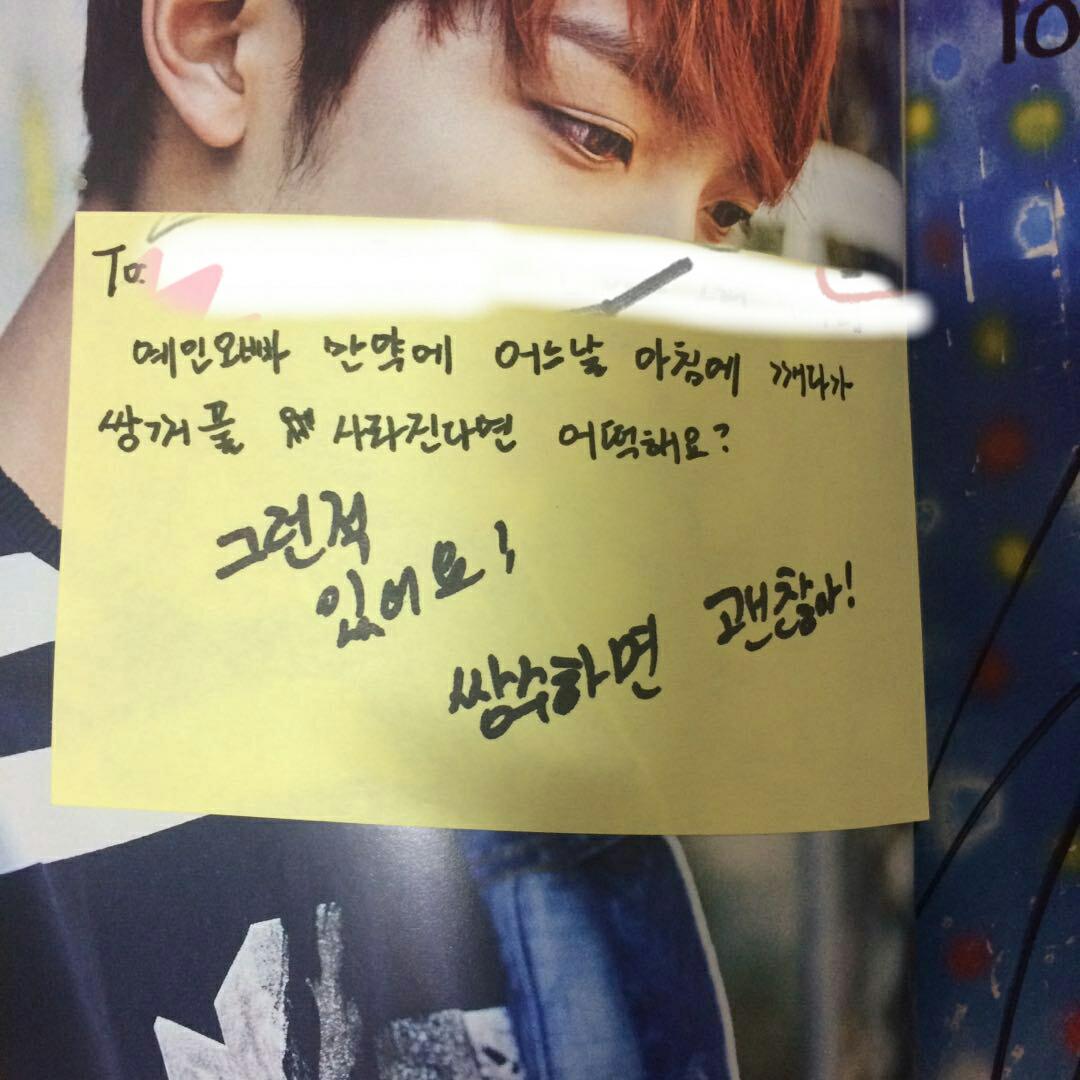 To
To.
예인와빠 만약에 어느날 아침에 깨다가
쌍꺼풀 사라진다면 어떡해요?
그런적
있어요!
쌍수하면 괜찮아!